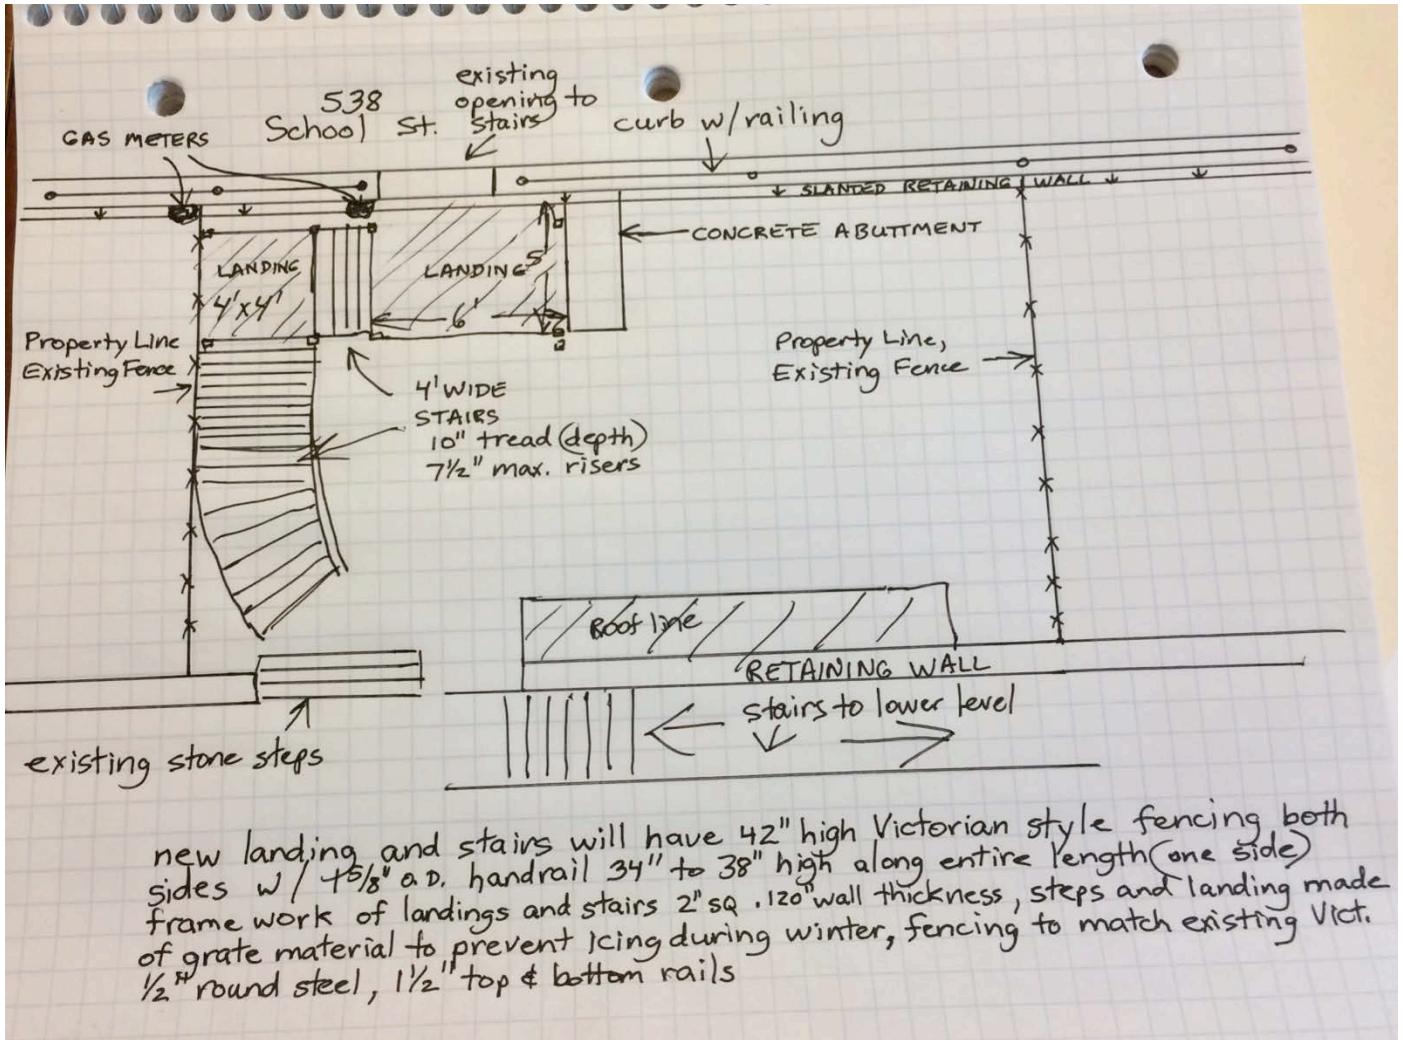 538
School St.
existing
opening to
stairs
curb w/railing
GAS METERS
SLANTED RETAINING WALL
CONCRETE ABUTTMENT
LANDING
4'x4'
LANDING
5'
6'
Property Line
Existing Fence
Property Line,
Existing Fence
4' WIDE
STAIRS
10" tread (depth)
7½" max. risers
Roof line
RETAINING WALL
stairs to lower level
existing stone steps
new landing and stairs will have 42" high Victorian style fencing both
sides w/ 1⅝" O.D. handrail 34" to 38" high along entire length (one side)
frame work of landings and stairs 2" SQ .120" wall thickness, steps and landing made
of grate material to prevent icing during winter, fencing to match existing Vict.
½" round steel, 1½" top & bottom rails